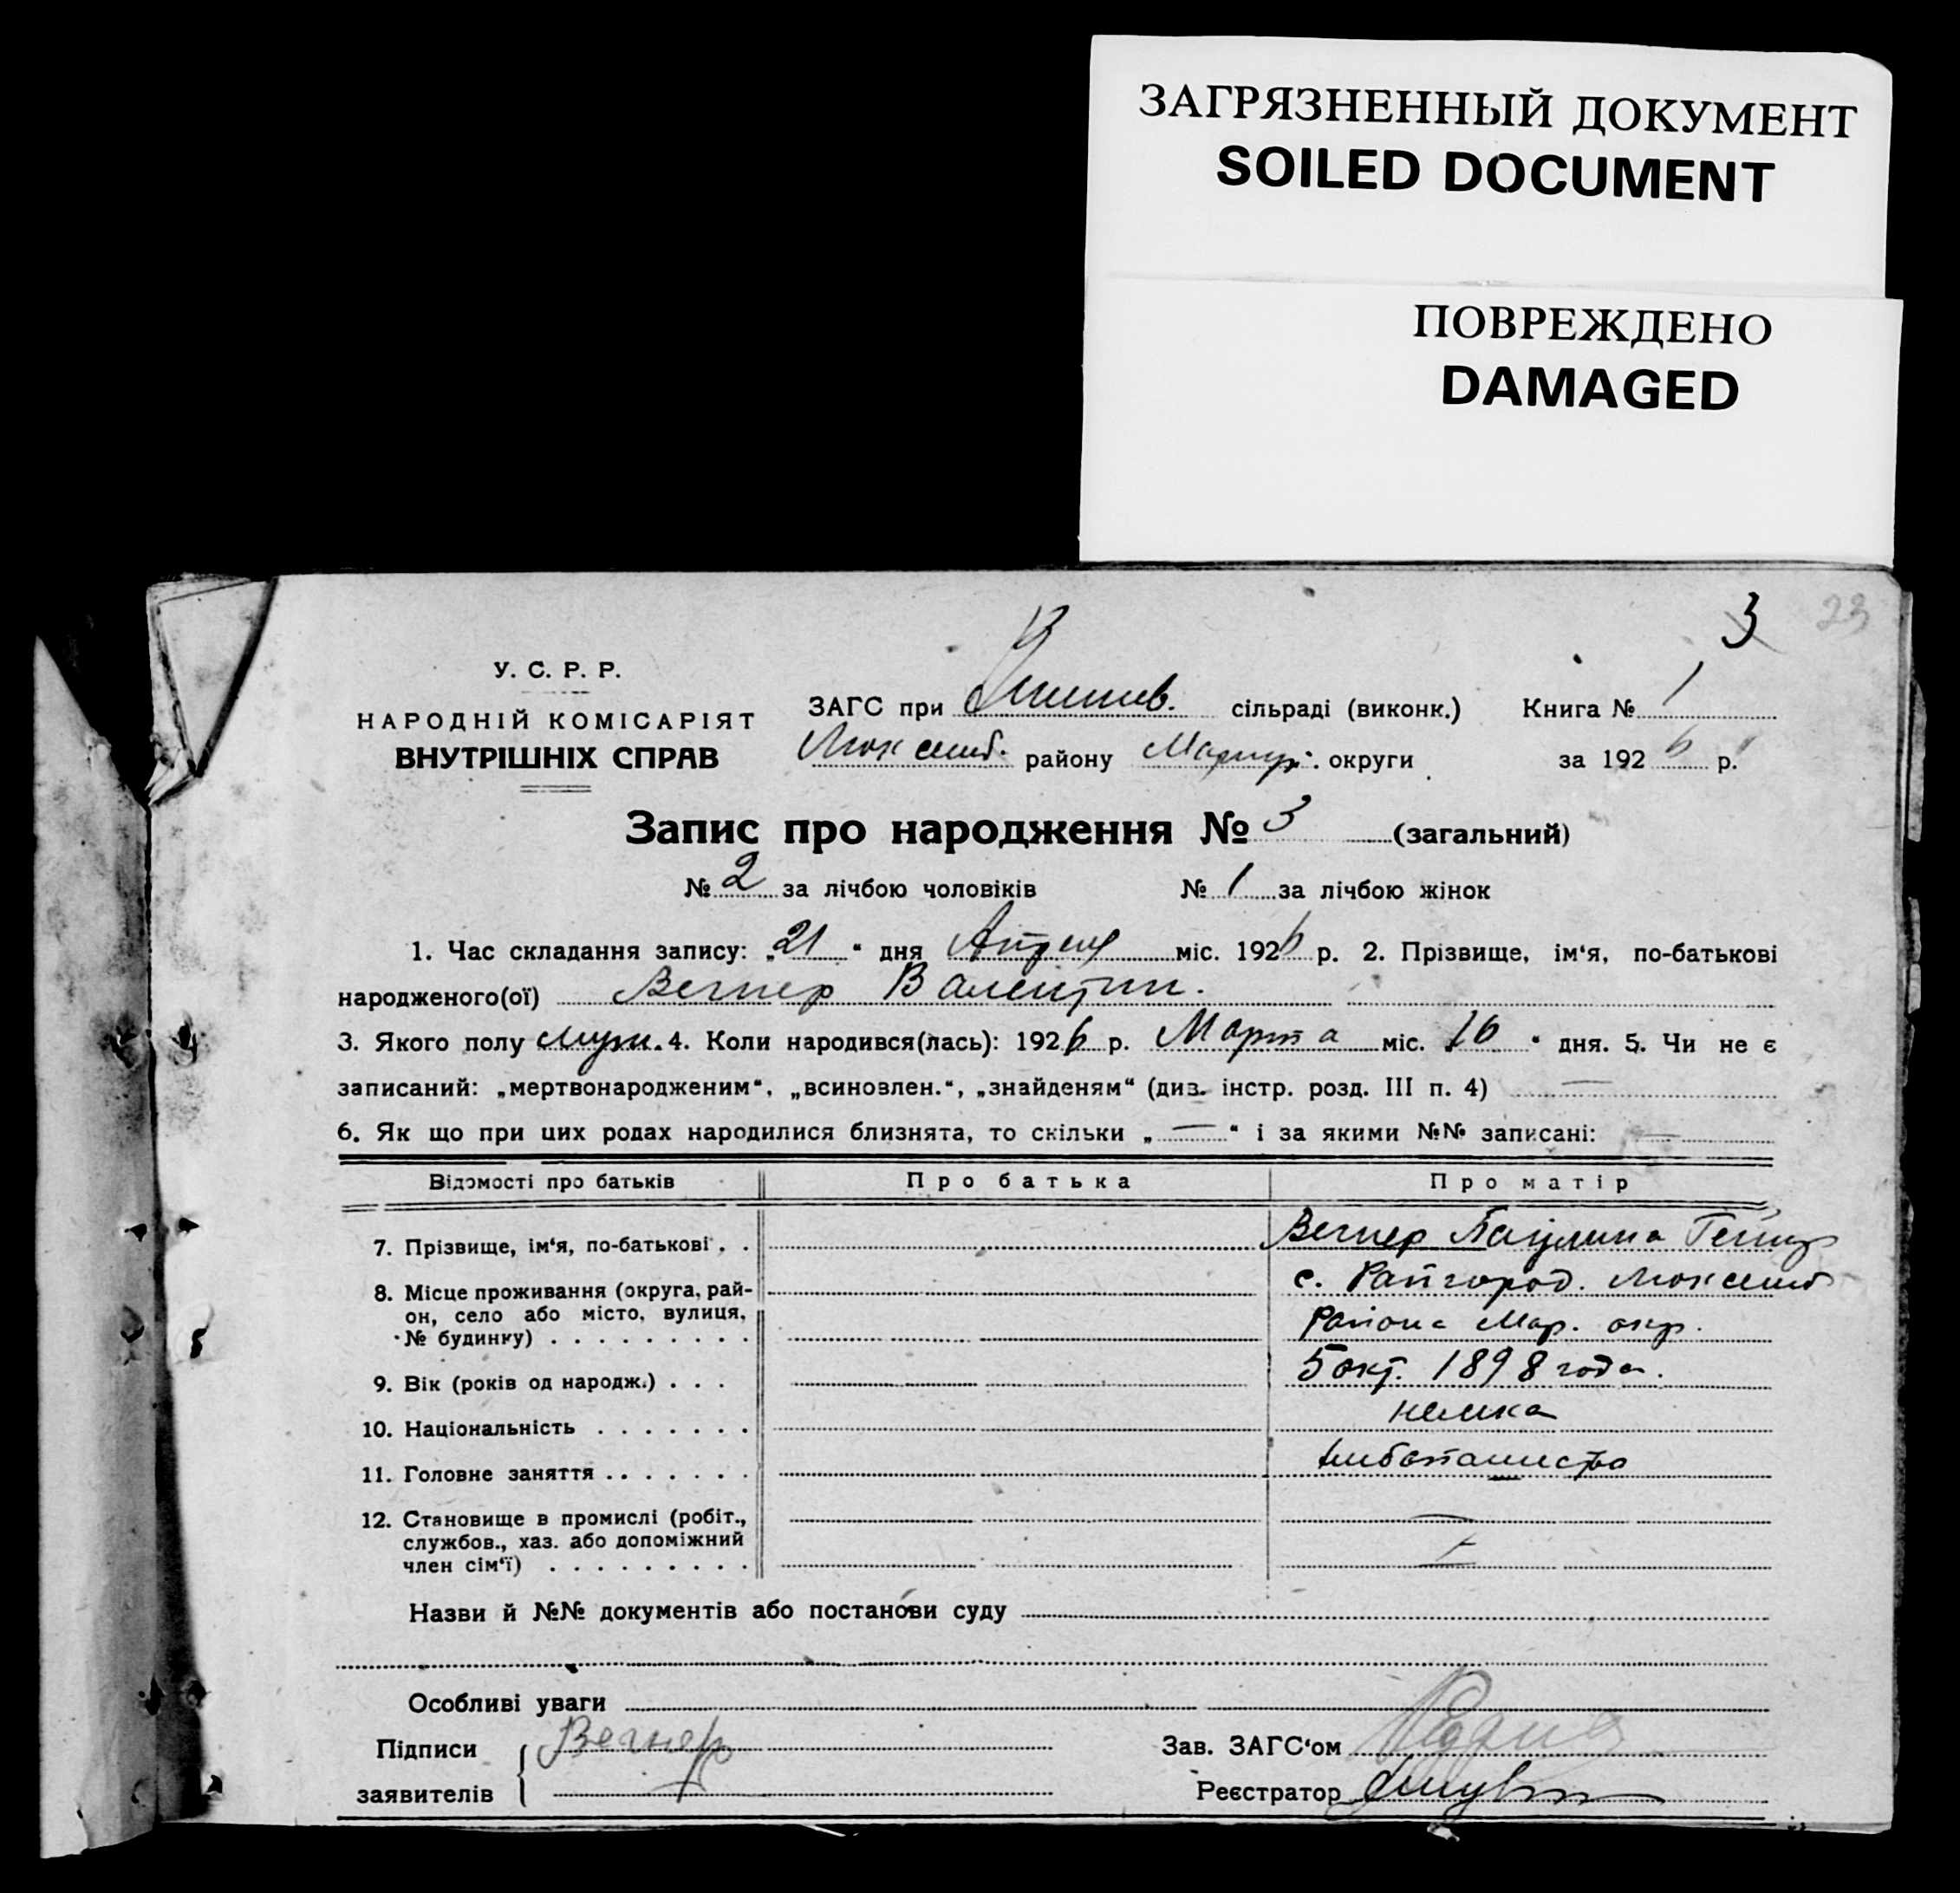 ЗАГРЯЗНЕННЫЙ ДОКУМЕНТ
SOILED DOCUMENT
ПОВРЕЖДЕНО
DAMAGED
3 23
У. С. Р. Р.
НАРОДНІЙ КОМІСАРІЯТ
ВНУТРІШНІХ СПРАВ
ЗАГС при сільраді (виконк.) Книга № 1
района Мариуп. округи за 1926 р.
Запис про народження № 3 (загальний)
№ 2 за лічбою чоловіків № 1 за лічбою жінок
1. Час складання запису: „21“ дня Апреля міс. 1926 р. 2. Прізвище, ім‘я, по-батькові
народженого(ої) Вегнер Валентин.
3. Якого полу муж. 4. Коли народився(лась): 1926 р. Марта міс. 16 “ дня. 5. Чи не є
записаний: „мертвонародженим“, „всиновлен.“, „знайденям“ (див. інстр. розд. III п. 4) —
6. Як що при цих родах народилися близнята, то скільки „—“ і за якими №№ записані: —
Відомості про батьків Про батька Про матір
7. Прізвище, ім‘я, по-батькові . . Вегнер Паулина
8. Місце проживання (округа, рай- с. Райгород.
он, село або місто, вулиця, Района Мар. окр.
№ будинку) . . . . . . . . .
9. Вік (років од народж.) . . . 5 окт. 1898 года.
10. Національність . . . . . . . немка
11. Головне заняття . . . . . . .
12. Становище в промислі (робіт.,
службов., хаз. або допоміжний
член сім‘ї) . . . . . . . . .
Назви й №№ документів або постанови суду
Особливі уваги
Підписи Вегнер Зав. ЗАГС‘ом
заявителів Реєстратор